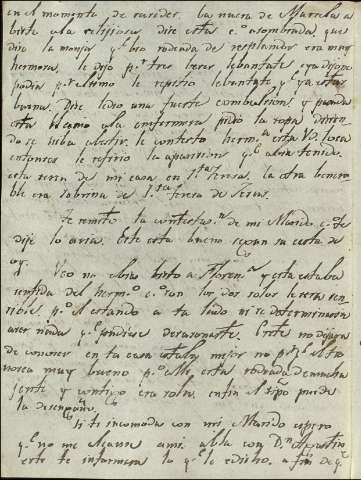 en el momento de suceder. La nuera de Marcelas a
birto a la religiosa, dice estas c.º asombrada, que
dira la monja q.e bio rodeada de resplandor era muy
hermosa, le dijo p.r tres beces lebantate
p.r ultimo le repitio lebantate q.e ya estas
buena. Dice le dio una fuerte combulsion, y parada
esta llamo a la enfermera pidio la ropa dicien
do se iba a bestir. le contesto herm.a esta V.d loca
entonces le refirio la aparision q.e abia tenido.
esta seria de mi casa en S.ta Teresa. la otra benera
ble era sobrina de S.ta Teresa de Jesus.
te remito la contestas.n de mi Marido c.º te
dije lo aria. Este esta bueno segun su carta de
oy.
Veo no abia bisto a Floren.a y esta estaba
sentida del herm.o c.º son los dos solos
p.º estando a tu lado ni se determinaria
aser nada q.e pudiese
de conoser en tu casa estaba mejor no p.r q.e el tio
no sea muy bueno p.º alli esta rodeada de mucha
jente y contigo era sola. en fin el tpo puede
la desengañe.
Si ti incomoda con mi Marido espero
q.e no me a mi. abla con D.n Agustin
este te informara lo q.e le e dicho. a fin de q.e